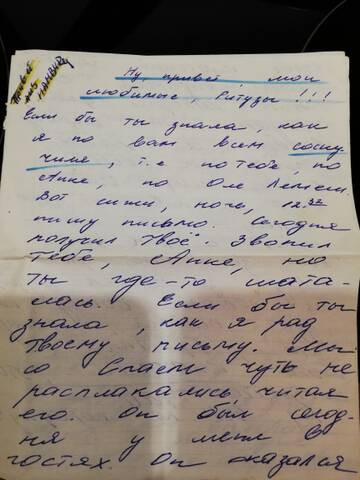 Привет
из
Ну, привет, мои
любимые, Ритузы!!!
Если бы ты знала, как
я по вам всем соску-
чился, т.е по тебе, по
Анке, по Оле
Вот сижу, ночь, 12.37
пишу письмо. Сегодня
получил твоё. Звонил
тебе, Анке, но
ты где-то шата-
лась. Если бы ты
знала, как я рад
твоему письму. Мы
со Стасем чуть не
расплакались, читая
его. Он был сегод-
ня у меня в
гостях. Он оказался